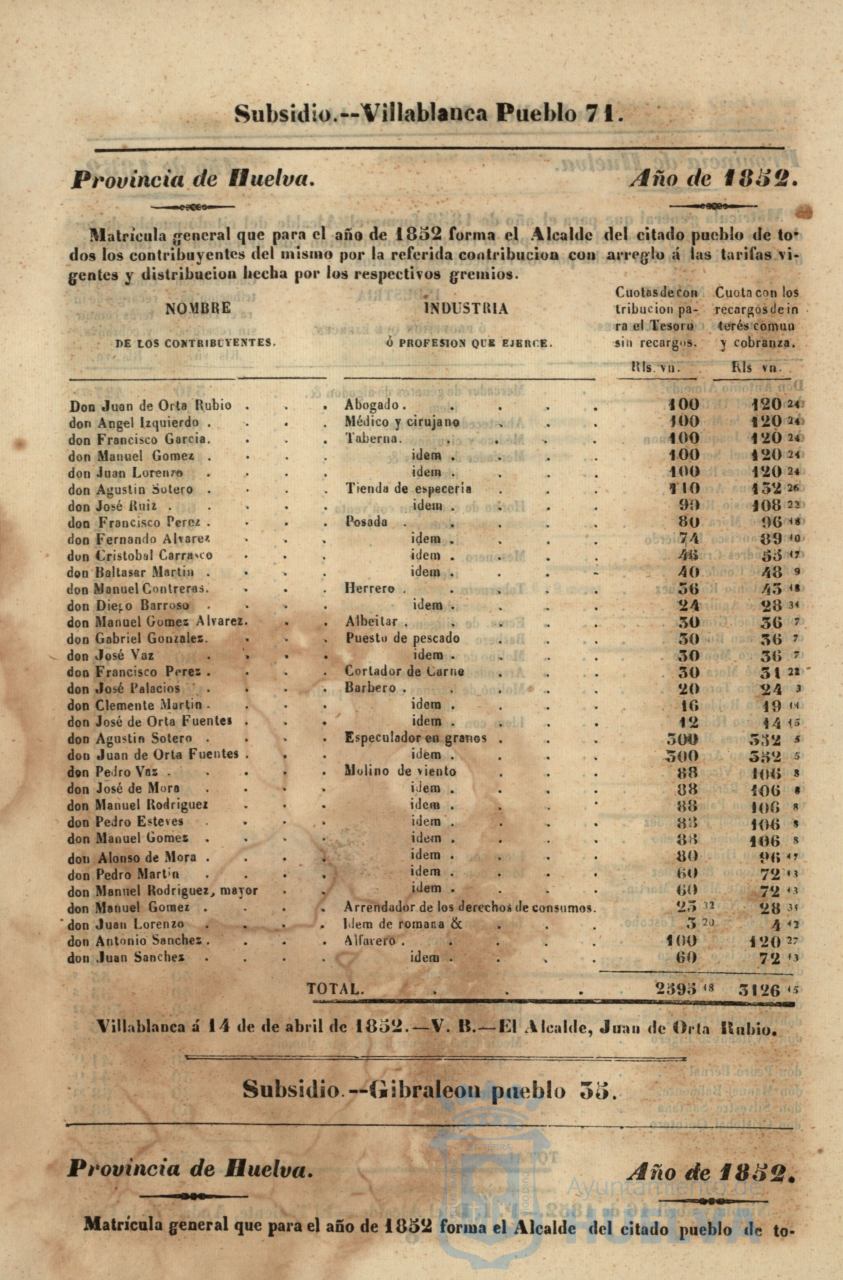 Subsidio.--Villablanca Pueblo 71.
Provincia de Huelva. Año de 1852.
Matrícula general que para el año de 1852 forma el Alcalde del citado pueblo de to-
dos los contribuyentes del mismo por la referida contribucion con arreglo á las tarifas vi-
gentes y distribucion hecha por los respectivos gremios.
NOMBRE DE LOS CONTRIBUYENTES.
INDUSTRIA Ó PROFESION QUE EJERCE.
Cuotas de con
tribucion pa-
ra el Tesoro
sin recargos.
Rls. vn.
Cuota con los
recargos de in
terés comun
y cobranza.
Rls vn.
Don Juan de Orta Rubio . . . Abogado. . . . . 100 120 24
don Angel Izquierdo . . . . Médico y cirujano . . . 100 120 24
don Francisco Garcia. . . . Taberna. . . . . 100 120 24
don Manuel Gomez . . . . idem . . . . 100 120 24
don Juan Lorenzo . . . . idem . . . . 100 120 24
don Agustin Sotero . . . . Tienda de especería . . . 110 132 26
don José Ruiz . . . . . idem . . . . 108 22
don Francisco Perez . . . . Posada . . . . . 80 96 18
don Fernando Alvarez . . . idem . . . . 74 89 10
don Cristobal Carrasco . . . idem . . . . 46 55 17
don Baltasar Martin . . . . idem . . . . 40 48 9
don Manuel Contreras. . . . Herrero . . . . . 36 43 18
don Diego Barroso . . . . idem . . . . 24 28 34
don Manuel Gomez Alvarez. . . . Albeitar . . . . . 30 36 7
don Gabriel Gonzalez. . . . Puesto de pescado . . . 30 36 7
don José Vaz . . . . idem . . . . 30 36 7
don Francisco Perez . . . . Cortador de Carne . . . 30 31 22
don José Palacios . . . . Barbero . . . . . 20 24 3
don Clemente Martin . . . . idem . . . . 16 19
don José de Orta Fuentes . . . idem . . . . 12 14 15
don Agustin Sotero . . . . Especulador en granos . . . 300 332 5
don Juan de Orta Fuentes . . . idem . . . . 300 332 5
don Pedro Vaz . . . . . Molino de viento . . . 88 106 8
don José de Mora . . . . idem . . . . 88 106 8
don Manuel Rodriguez . . . idem . . . . 88 106 8
don Pedro Esteves . . . . idem . . . . 88 106 8
don Manuel Gomes . . . . idem . . . . 88 106 8
don Alonso de Mora . . . . idem . . . . 80 96 17
don Pedro Martin . . . . idem . . . . 60 72 13
don Manuel Rodriguez, mayor . . idem . . . . 60 72 13
don Manuel Gomez . . . . Arrendador de los derechos de consumos. 23 32 28
don Juan Lorenzo . . . . Idem de romana & . . . 3 20 4 12
don Antonio Sanchez . . . . Alfarero . . . . . 100 120 27
don Juan Sanchez . . . . idem . . . . 60 72 13
TOTAL. . . . 2393 18 3126 15
Villablanca á 14 de de abril de 1852.—V. B.—El Alcalde, Juan de Orta Rubio.
Subsidio.--Gibraleon pueblo 35.
Provincia de Huelva. Año de 1852.
Matrícula general que para el año de 1852 forma el Alcalde del citado pueblo de to-
Ayuntamiento de
HUELVA